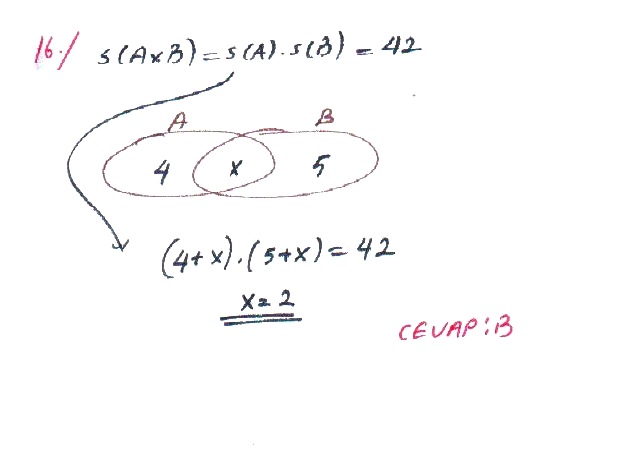 16./ s(AxB)=s(A).s(B)=42
A B
4 x 5
(4+x).(5+x)=42
x=2
CEVAP:B